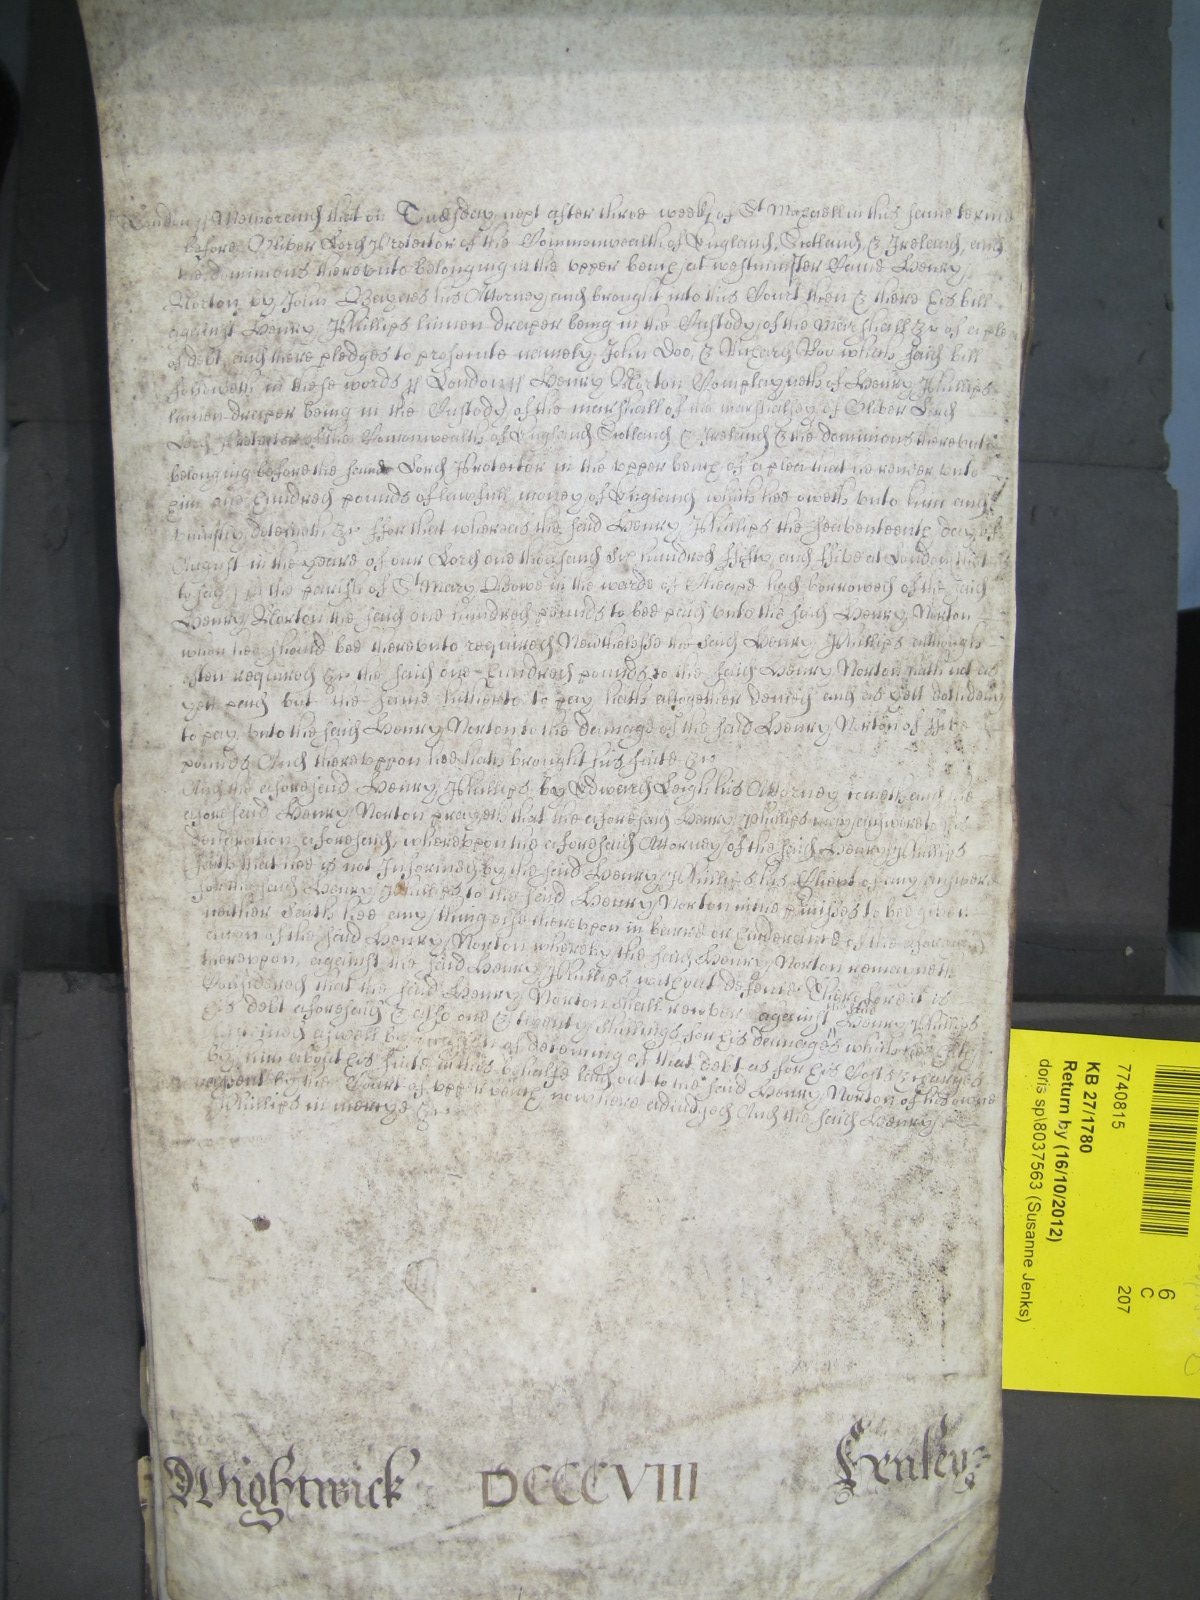 London ss Memorand that on Tuesday next after three weekes of St Michaell in this same terme
before Oliver Lord Protector of the Commonwealth of England, Scotland, & Ireland, and
the dominions therevnto belonging in the vpper bench at westminster Came Henry
Norton by John Baynes his Attorney and brought into this Court then & there his bill
against Henry Phillips linnen draper being in the Custody of the Marshall &c of a plea
of debt, and there pledges to prosecute namely John Doo, & Richard Roo which said bill
followeth in these words ss London ss Henry Norton Complayneth of Henry Phillips
linnen draper being in the Custody of the marshall of the marshalsey of Oliver Lord
Lord Protector of the Comonwealth of England Scotland & Ireland & the dominions therevnto
belonging before the said Lord Protector in the vpper bench of a plea that he render vnto
him one hundred pounds of lawfull money of England which hee oweth vnto him and
vniustly deteineth &c ffor that whereas the said Henry Phillips the seaventeenth day of
August in the yeare of our Lord one thousand six hundred fifty and ffive at London that is
to say in the parish of St Mary Bowe in the warde of Cheape had borrowed of the said
Henry Norton the said one hundred pounds to bee paid vnto the said Henry Norton
when hee should bee therevnto required Neverthelesse the said Henry Phillips although
often required &c the said one hundred pounds to the said Henry Norton hath not as
yett paid but the same hitherto to pay hath altogether denied and as yett doth deny
to pay vnto the said Henry Norton to the damage of the said Henry Norton of ffive
pounds And therevppon hee hath brought his suite &c
And the aforesaid Henry Phillips by Edward Leigh his Attorney cometh and the
aforesaid Henry Norton prayeth that the aforesaid Henry Phillips may answere to his
declaration aforesaid, wherevpon the aforesaid Attorney of the said Henry Phillips
saith that hee is not Informed by the said Henry Phillips his Client of any answere
for the said Henry Phillips to the said Henry Norton in the premisses to bee given
neither saith hee any thing else therevpon in barre or hinderance of the aforesaid
accon of the said Henry Norton whereby the said Henry Norton remayneth
therevpon, against the said Henry Phillips without defence Therefore it is
Considered that the said Henry Norton shall recover against the said Henry Phillips
his debt aforesaid & also one & twenty shillings for his damages which hee hath
susteined aswell by occasion of deteining of that debt as for his Costs & charges
by him about his suite in this behalfe laid out to the said Henry Norton of his owne
assent by the Court of vpper bench now here adiudged And the said Henry
Phillips in mercye &c
Wightwick DCCCVIII
7740815
KB 27/1780
Return by (16/10/2012)
doris sp\8037563 (Susanne Jenks)
6
C
207